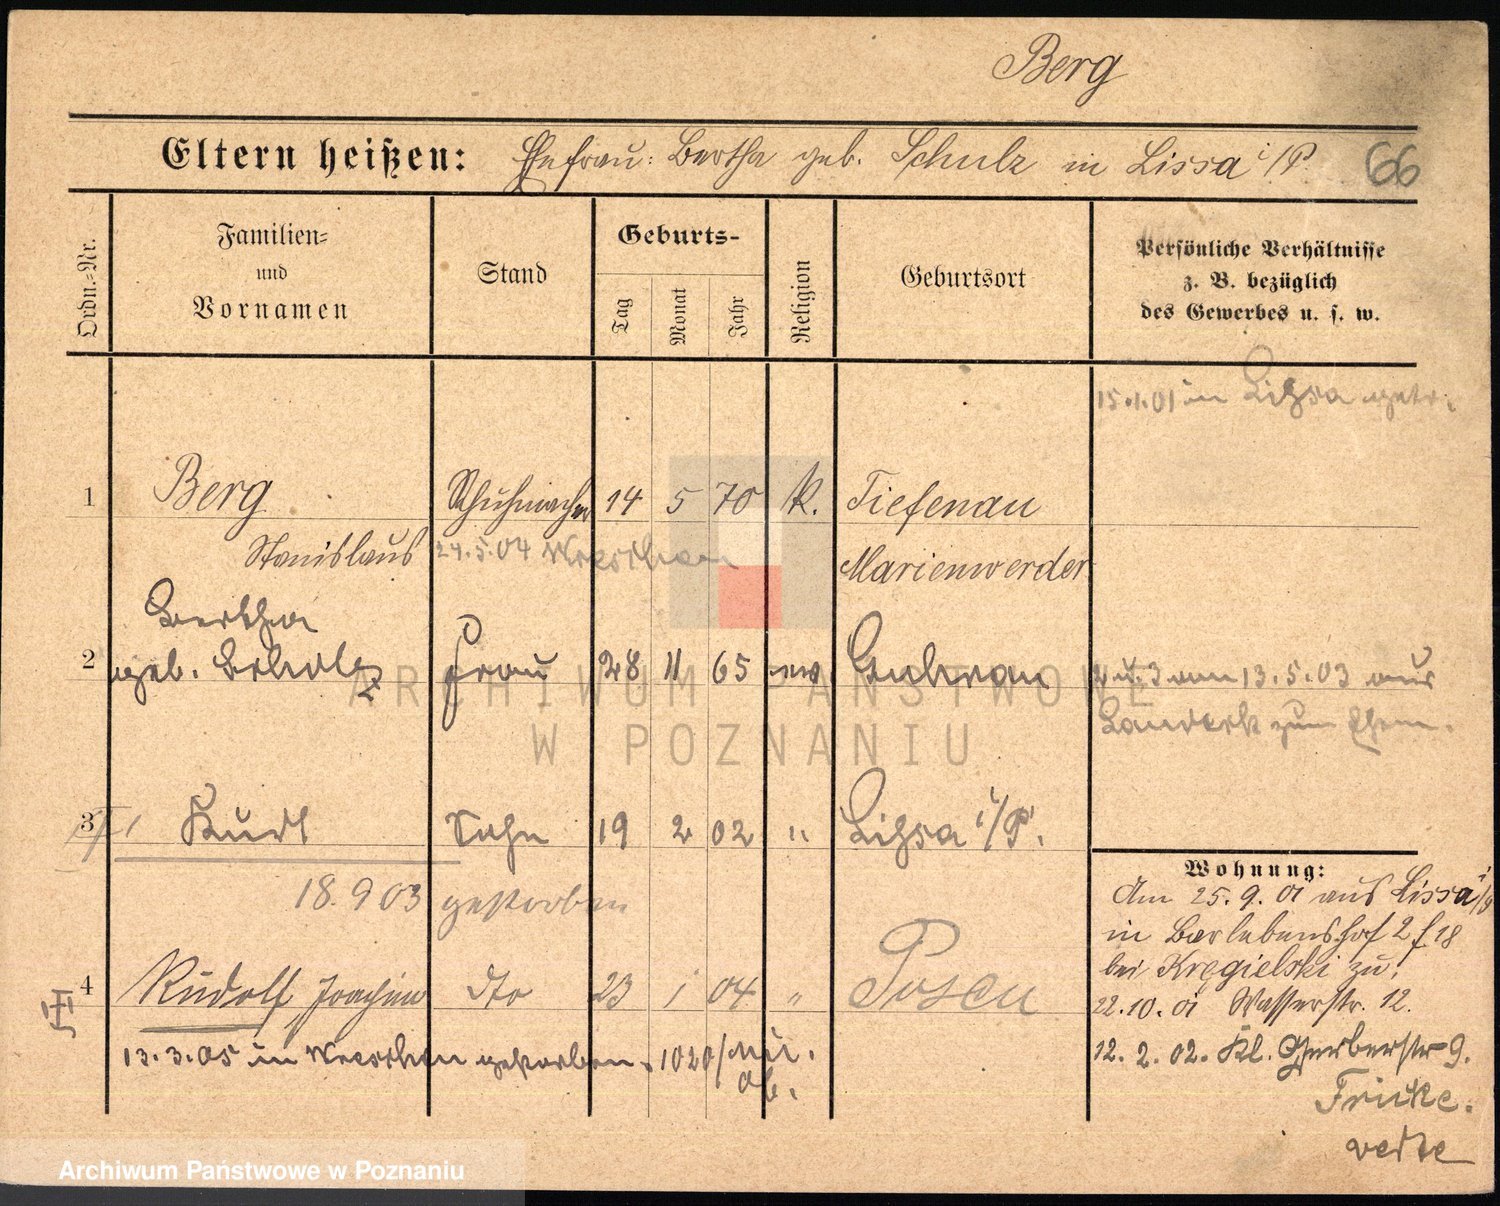 Berg
Eltern heißen: Ehefrau: Bertha geb. Schulz in Lissa i/P. 66
Ordn.-Nr.
Familien- und Vornamen
Stand
Geburts-
Tag Monat Jahr
Religion
Geburtsort
Persönliche Verhältnisse
z. B. bezüglich
des Gewerbes u. s. w.
15.1.01 in Lissa getr.
1 Berg Schuhmacher 14 5 70 k. Tiefenau
Stanislaus 24.5.04 Wreschen Marienwerder
Bertha
2 geb. Scholz Frau 28 11 65 ev. Guhrau 2 u. 3 am 13.5.03 aus
zum Ehem.
3 Kurt Sohn 19 2 02 " Lissa i/P.
18.9 03 gestorben
4 Rudolf Joachim dto 23 1 04 " Posen
13.3.05 in Wreschen gestorben. 1020/
Wohnung:
Am 25.9.01 aus Lissa i/P
in Barlebenshof 2 f 18
bei Kręgielski zu,
22.10.01 Wasserstr. 12.
12.2.02. Kl. Gerberstr 9.
Fricke.
verte
ARCHIWUM PAŃSTWOWE
W POZNANIU
Archiwum Państwowe w Poznaniu